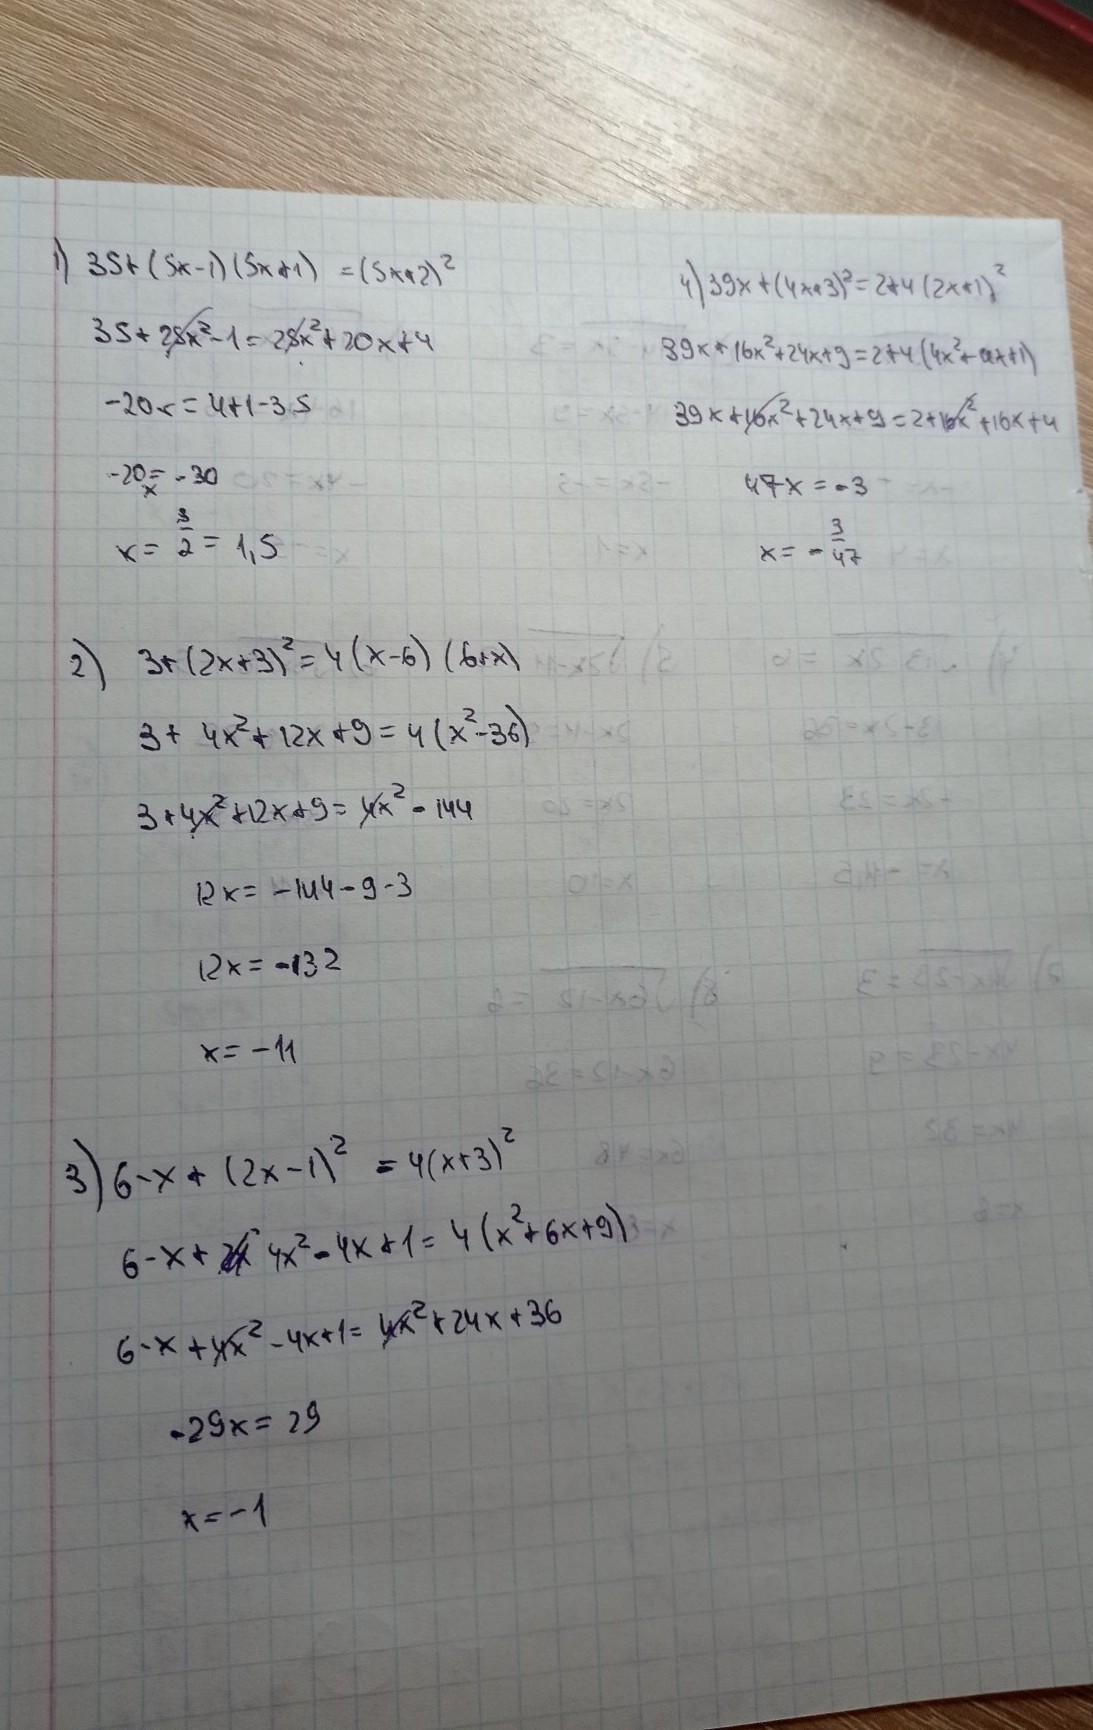 1) 35+(5x-1)(5x+1) =(5x+2)²
35+25x²-1=25x²+20x+4
-20x=4+1-35
-20x=-30
x=3/2=1,5
4) 39x+(4x+3)²=2+4(2x+1)²
39x+16x²+24x+9=2+4(4x²+4x+1)
39x+16x²+24x+9=2+16x²+16x+4
47x=-3
x=-3/47
2) 3+(2x+3)²=4(x-6)(6+x)
3+4x²+12x+9=4(x²-36)
3+4x²+12x+9=4x²-144
12x=-144-9-3
12x=-132
x=-11
3) 6-x+(2x-1)²=4(x+3)²
6-x+4x²-4x+1=4(x²+6x+9)
6-x+4x²-4x+1=4x²+24x+36
-29x=29
x=-1